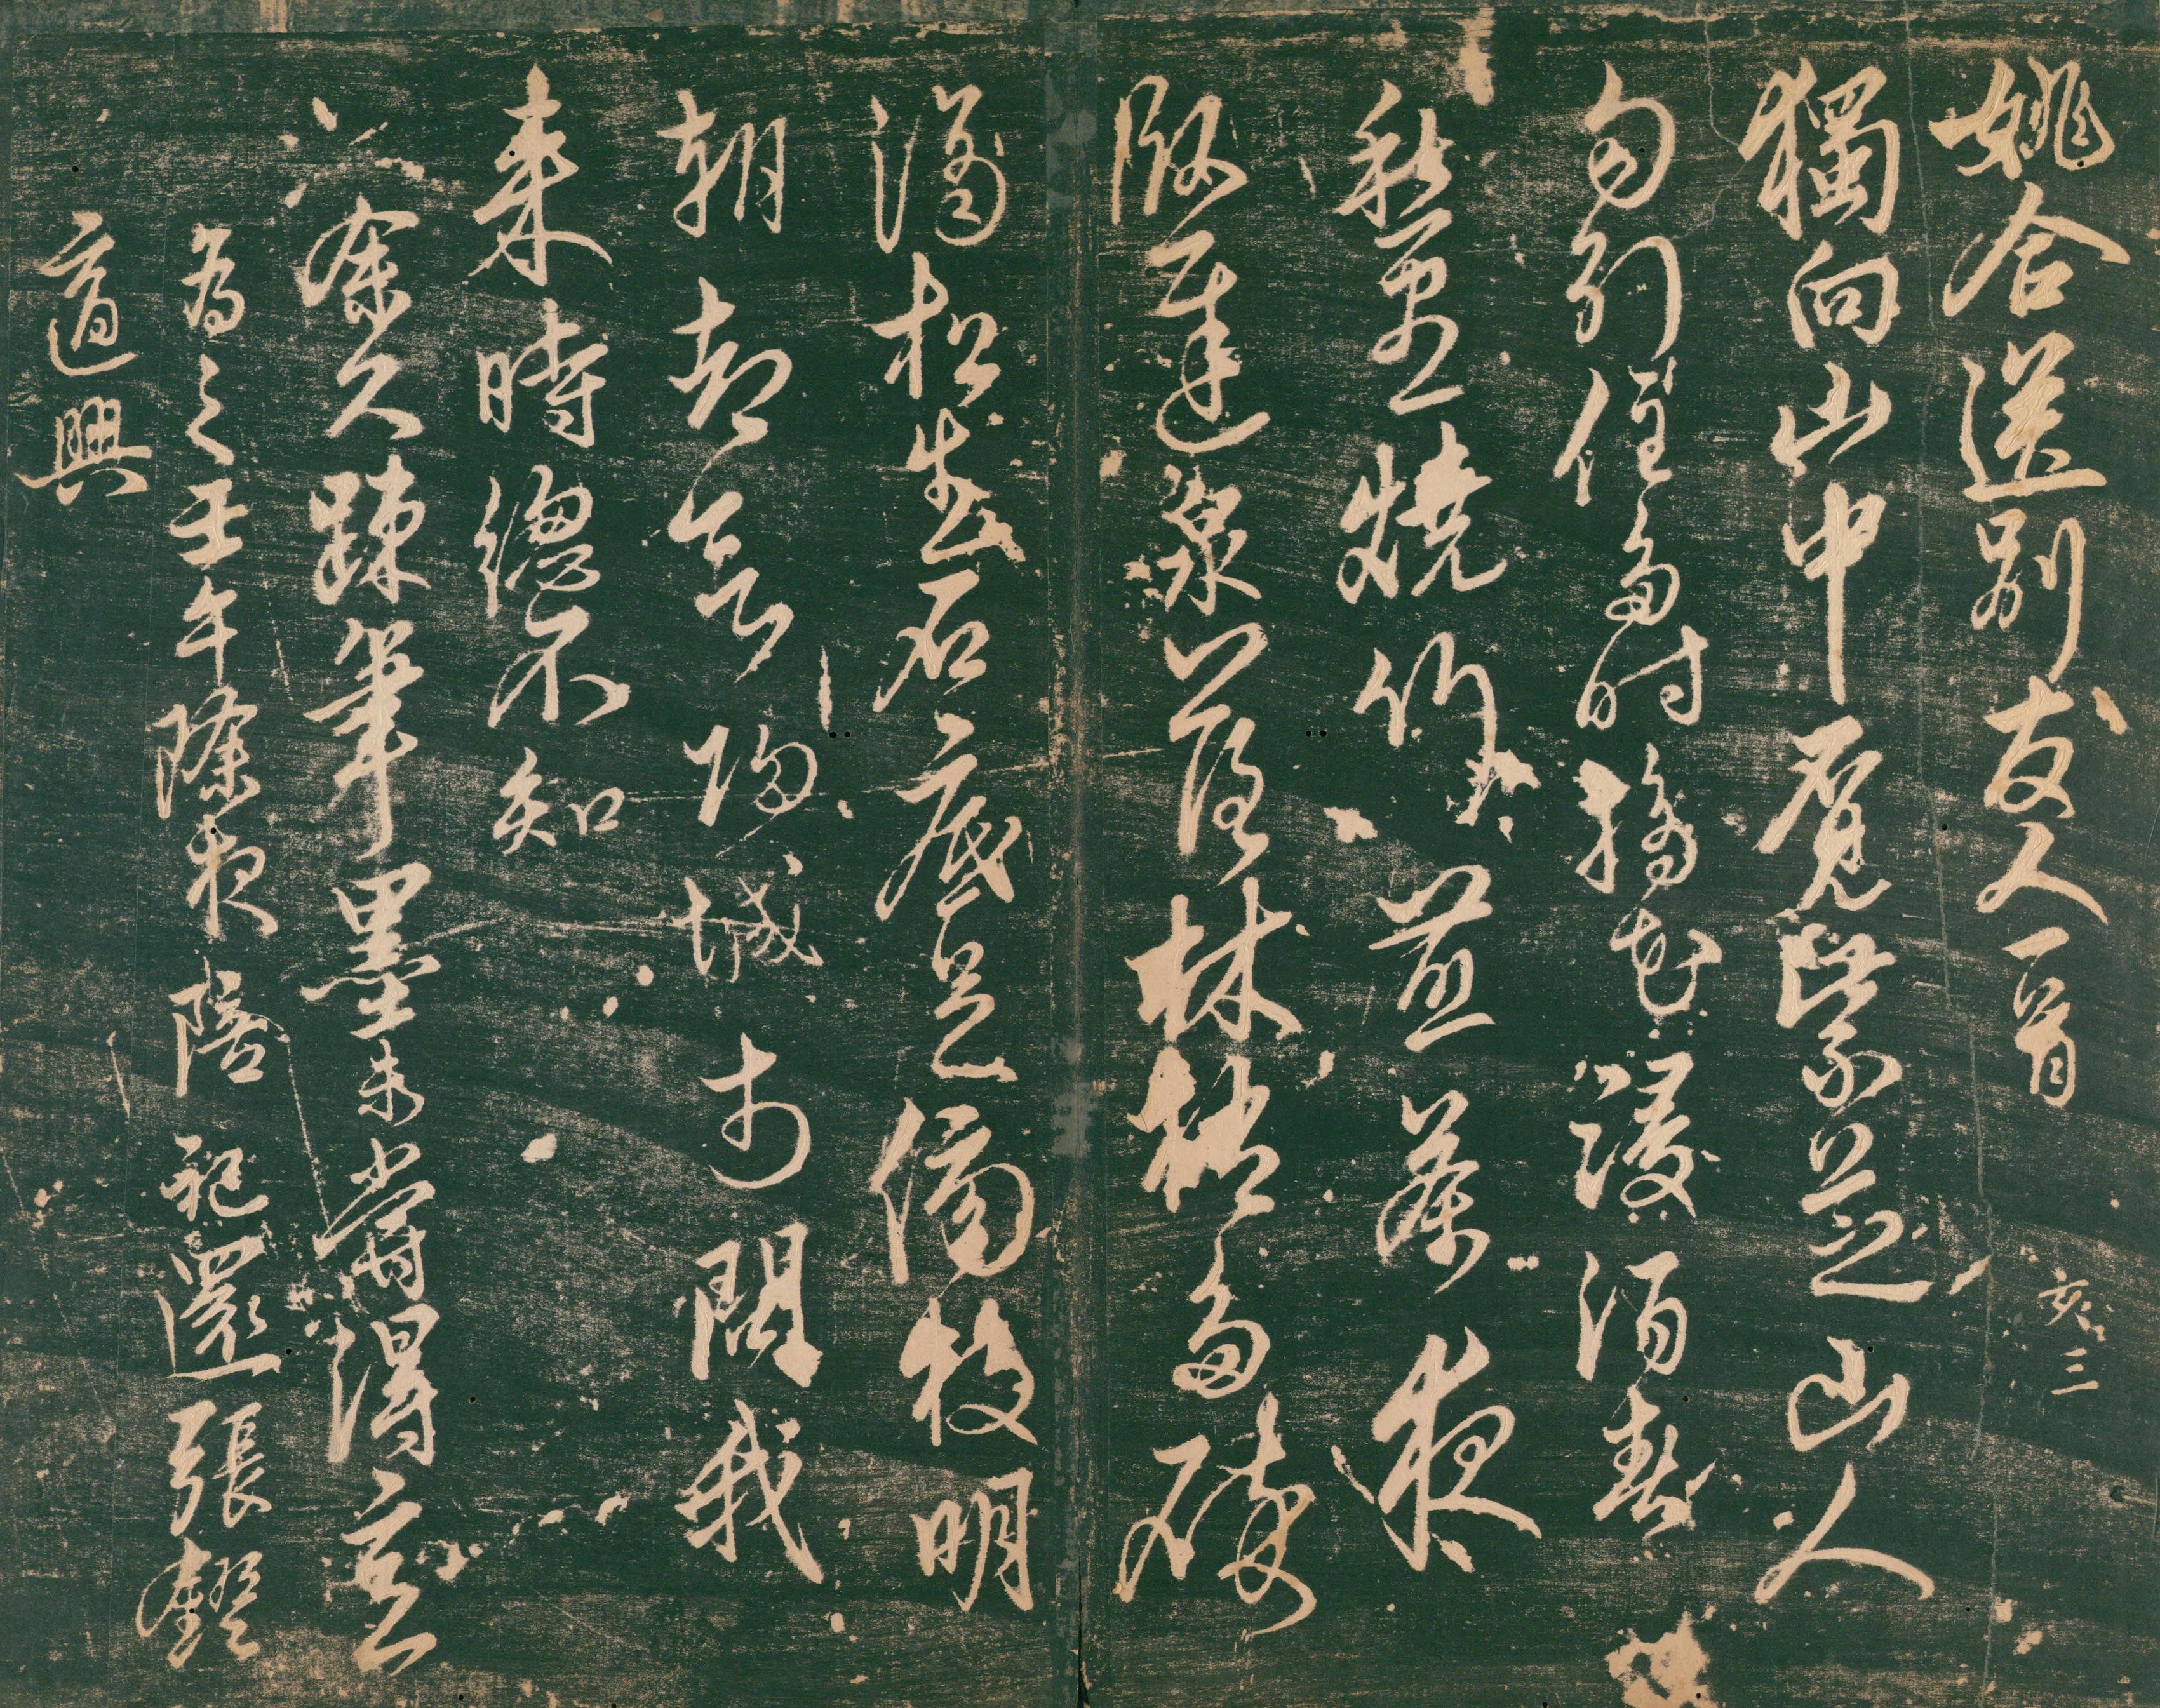 姚合送別友人一首
亥三
獨向山中覓紫芝山人
勾引住多時摘花浸酒春
愁盡燒竹煎茶夜
臥遲泉落林梢多碎
滴松生石底足傍枝明
朝却欲歸城市問我
来時總不知
余久疎筆墨未嘗得意
為之壬午除夜陪祀還張鐙
適興